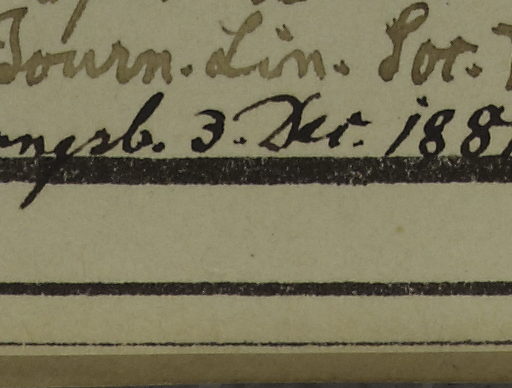 Journ. Lin. Soc.
3. Dec. 188